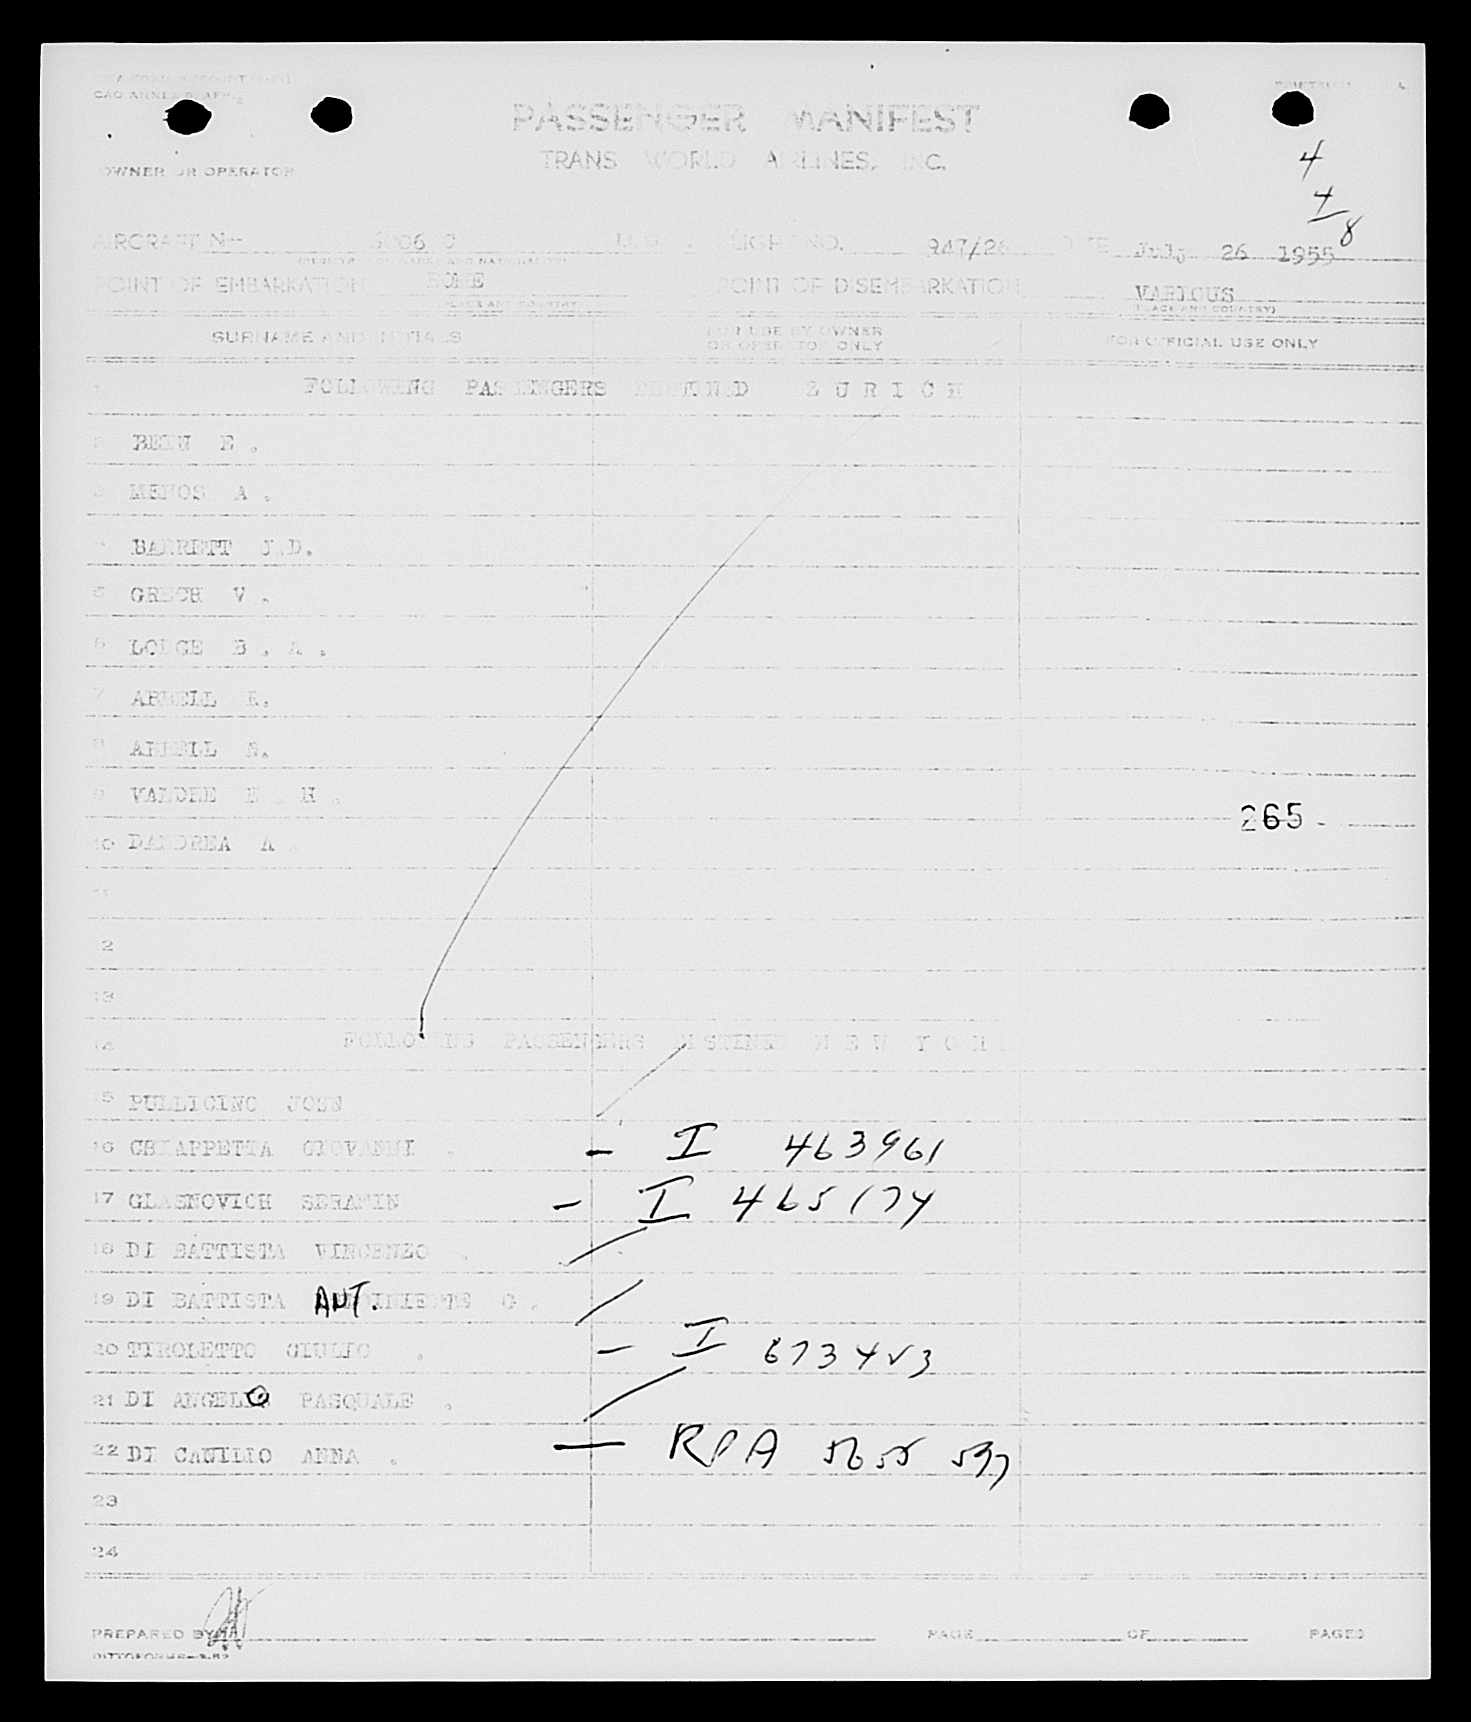 PASSENGER MANIFEST
TRANS WORLD AIRLINES, INC.
4
4
8
OWNER OR OPERATOR
AIRCRAFT N- 6006 C FLIGHT NO. 947/26 DATE July 26 1955
POINT OF EMBARKATION ROME POINT OF DISEMBARKATION VARIOUS
(PLACE AND COUNTRY) (PLACE AND COUNTRY)
SURNAME AND INITIALS FOR USE BY OWNER OR OPERATOR ONLY FOR OFFICIAL USE ONLY
1 FOLLOWING PASSENGERS Z U R I C H
2 BEIN E .
3 A .
4 BARRETT J.D.
5 GRECH V .
6 LODGE B . A .
7
8
9 E . H .
265 -
10 DANDREA A .
11
12
13
14 FOLLOWING PASSENGERS DESTINED N E W Y O R K
15 PULLICINO JOSE
16 CHIAPPETTA GIOVANNI . - I 463961
17 GLASNOVICH SERAFIN - I 465174
18 DI BATTISTA VINCENZO .
19 DI BATTISTA ANT. G .
20 TIROLETTO GIULIO . - I
21 DI ANGELO PASQUALE .
22 DI ANNA . - RPA
23
24
PREPARED BY PAGE OF PAGES